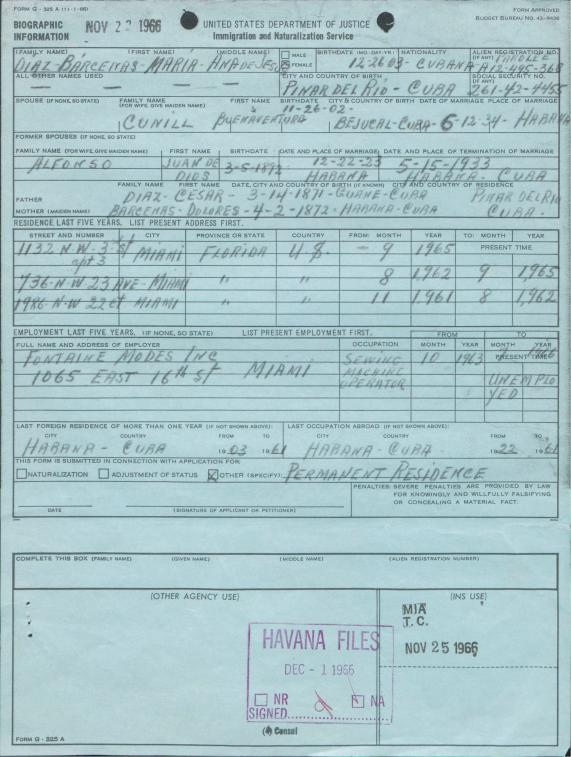 FORM G - 325 A (11-1-65)
FORM APPROVED
BUDGET BUREAU NO. 43-R436
BIOGRAPHIC INFORMATION
NOV 22 1966
UNITED STATES DEPARTMENT OF JUSTICE
Immigration and Naturalization Service
(FAMILY NAME) (FIRST NAME) (MIDDLE NAME) MALE FEMALE BIRTHDATE (MO.-DAY-YR.) NATIONALITY ALIEN REGISTRATION NO. (IF ANY)
DIAZ BARCENAS - MARIA - ANA DE JESUS 12-26-03 - CUBANA PAROLEE A12-495-368
ALL OTHER NAMES USED CITY AND COUNTRY OF BIRTH SOCIAL SECURITY NO. (IF ANY)
— — — PINAR DEL RIO - CUBA 261-42-4455
SPOUSE (IF NONE, SO STATE) FAMILY NAME (FOR WIFE, GIVE MAIDEN NAME) FIRST NAME BIRTHDATE CITY & COUNTRY OF BIRTH DATE OF MARRIAGE PLACE OF MARRIAGE
CUNILL BUENAVENTURA 11-26-02- BEJUCAL-CUBA-6-12-34-HABANA
FORMER SPOUSES (IF NONE, SO STATE)
FAMILY NAME (FOR WIFE, GIVE MAIDEN NAME) FIRST NAME BIRTHDATE DATE AND PLACE OF MARRIAGE DATE AND PLACE OF TERMINATION OF MARRIAGE
ALFONSO JUAN DE DIOS 3-5-1892 12-22-23 HABANA 5-15-1933 HABANA - CUBA
FAMILY NAME FIRST NAME DATE, CITY AND COUNTRY OF BIRTH (IF KNOWN) CITY AND COUNTRY OF RESIDENCE
FATHER DIAZ - CESAR - 3-14-1871-GUANE-CUBA PINAR DEL RIO
MOTHER (MAIDEN NAME) BARCENAS-DOLORES-4-2-1872-HABANA-CUBA CUBA.
RESIDENCE LAST FIVE YEARS. LIST PRESENT ADDRESS FIRST.
STREET AND NUMBER CITY PROVINCE OR STATE COUNTRY FROM: MONTH YEAR TO: MONTH YEAR
1132 N.W-3-st apt 3 MIAMI FLORIDA U S. - 9 1965 PRESENT TIME
736-N-W 23 AVE-MIAMI " " 8 1,962 9 1,965
1986-N-W 22 st MIAMI " " 11 1,961 8 1,962
EMPLOYMENT LAST FIVE YEARS. (IF NONE, SO STATE) LIST PRESENT EMPLOYMENT FIRST. FROM TO
FULL NAME AND ADDRESS OF EMPLOYER OCCUPATION MONTH YEAR MONTH YEAR
FONTAINE MODES INC SEWING 10 1963 PRESENT TIME 1966
1065 EAST 16th St MIAMI MACHINE OPERATOR UNEMPLOYED
LAST FOREIGN RESIDENCE OF MORE THAN ONE YEAR (IF NOT SHOWN ABOVE) LAST OCCUPATION ABROAD (IF NOT SHOWN ABOVE)
CITY COUNTRY FROM TO CITY COUNTRY FROM TO
HABANA - CUBA 1903 1961 HABANA - CUBA 1922 1961
THIS FORM IS SUBMITTED IN CONNECTION WITH APPLICATION FOR:
NATURALIZATION ADJUSTMENT OF STATUS OTHER (SPECIFY): PERMANENT RESIDENCE
PENALTIES: SEVERE PENALTIES ARE PROVIDED BY LAW FOR KNOWINGLY AND WILLFULLY FALSIFYING OR CONCEALING A MATERIAL FACT.
DATE (SIGNATURE OF APPLICANT OR PETITIONER)
COMPLETE THIS BOX (FAMILY NAME) (GIVEN NAME) (MIDDLE NAME) (ALIEN REGISTRATION NUMBER)
(OTHER AGENCY USE) (INS USE)
MIA
T.C.
NOV 25 1966
HAVANA FILES
DEC - 1 1966
NR NA
SIGNED
Consul
FORM G - 325 A